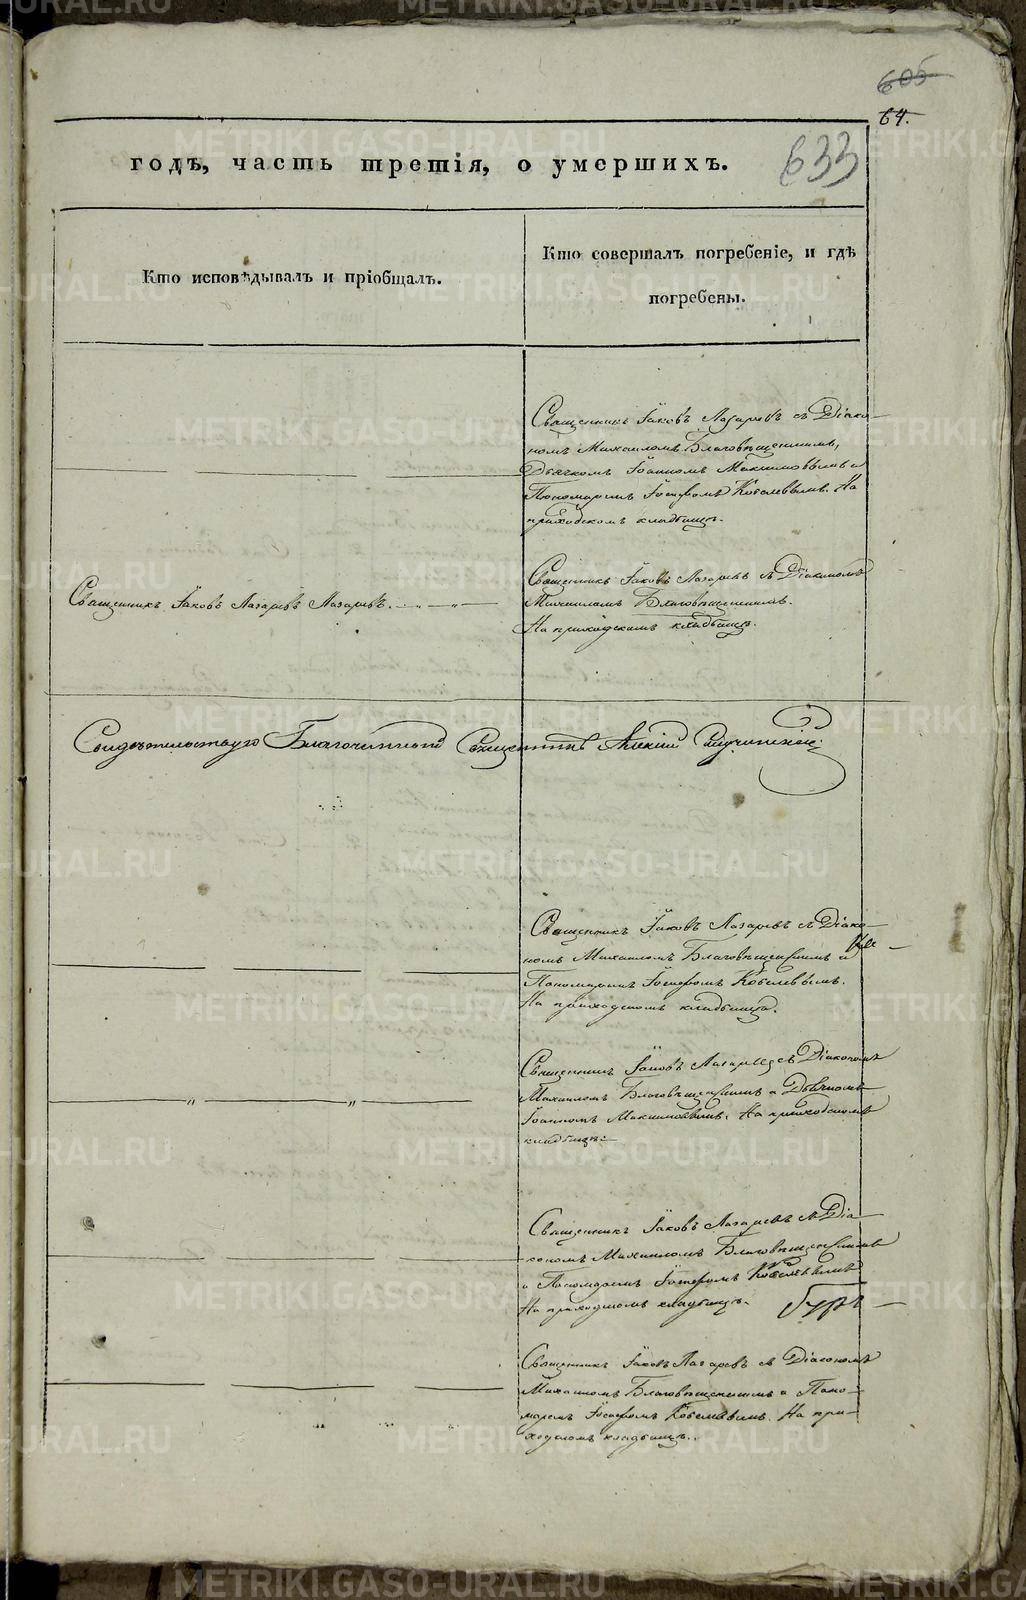 605
64.
633
годъ, часть третія, о умершихъ.
Кто исповѣдывалъ и пріобщалъ.
Кто совершалъ погребеніе, и гдѣ
погребены.
Священникъ Іаковъ Лазаревъ съ Діако-
номъ Михаиломъ Благовѣщенскимъ,
Дьячкомъ Іоанномъ Максимовымъ и
Пономаремъ Іосифомъ Кобелевымъ. На
приходскомъ кладбищѣ.
Священникъ Іаковъ Лазаревъ Лазаревъ.
Священникъ Іаковъ Лазаревъ съ Діакономъ
Михаиломъ Благовѣщенскимъ.
На приходскомъ кладбищѣ.
Свидетельствую Благочинный Священникъ
Священникъ Іаковъ Лазаревъ съ Діако-
номъ Михаиломъ Благовѣщенскимъ и
Пономаремъ Іосифомъ Кобелевымъ.
На приходскомъ кладбищѣ.
Священникъ Іаковъ Лазаревъ съ Діакономъ
Михаиломъ Благовѣщенскимъ и Дьячкомъ
Іоанномъ Максимовымъ. На приходскомъ
кладбищѣ.
Священникъ Іаковъ Лазаревъ съ Діа-
кономъ Михаиломъ Благовѣщенскимъ
и Пономаремъ Іосифомъ Кобелевымъ
На приходскомъ кладбищѣ.
Священникъ Іаковъ Лазаревъ съ Діакономъ
Михаиломъ Благовѣщенскимъ и Поно-
маремъ Іосифомъ Кобелевымъ. На при-
ходскомъ кладбищѣ.
METRIKI.GASO-URAL.RU